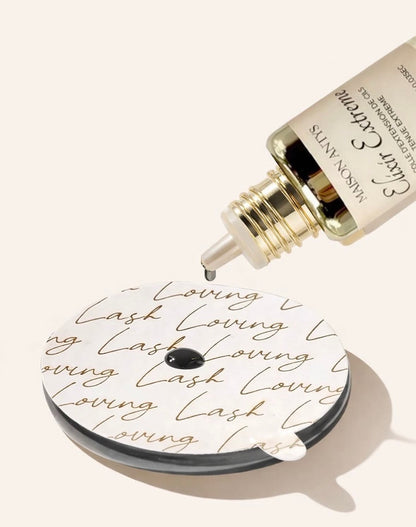 MAISON ANTYS
Elixir Extreme
COLLE D'EXTENSION DE CILS
TENUE EXTREME
0.03SEC
Loving L
Lash Loving
ing Lash Loving
oving Lash Lovin
Loving Lash L
Loving Lash